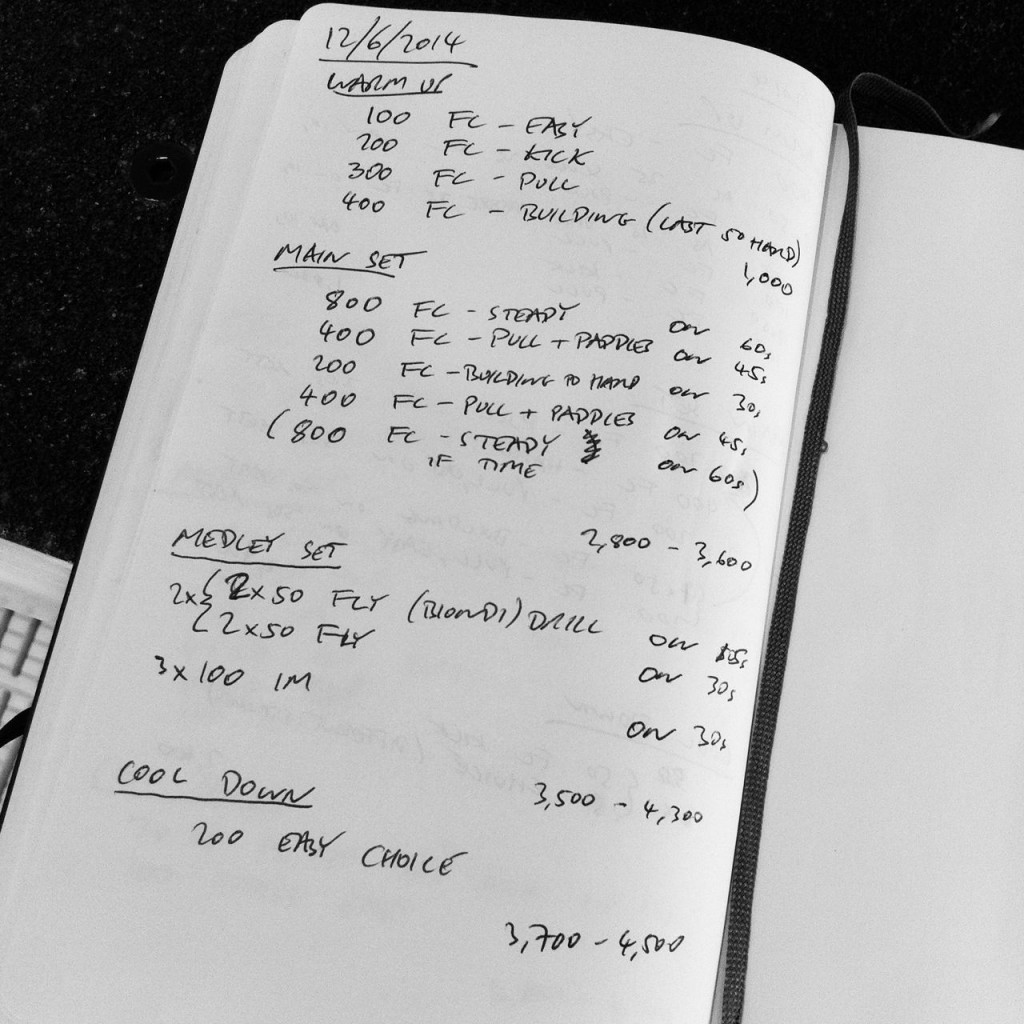 12/6/2014
WARM UP
100 FC - EASY
200 FC - KICK
300 FC - PULL
400 FC - BUILDING (LAST 50 HARD)
1,000
MAIN SET
800 FC - STEADY on 60s
400 FC - PULL + PADDLES on 45s
200 FC - BUILDING TO HARD on 30s
400 FC - PULL + PADDLES on 45s
(800 FC - STEADY on 60s)
IF TIME
2,800 - 3,600
MEDLEY SET
2x { 2x50 FLY (BIONDI) DRILL on
{ 2x50 FLY on 30s
3x100 IM on 30s
3,500 - 4,300
COOL DOWN
200 EASY CHOICE
3,700 - 4,500